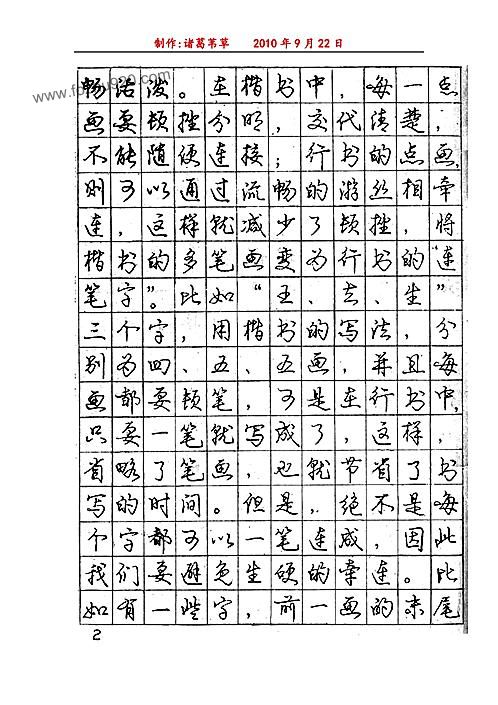 制作:诸葛苇草 2010年9月22日
畅活泼。在楷书中，每一点
画要顿挫分明，交代清楚，
不能随便连接；行书的点画，
则可以通过流畅的游丝相牵
连，这样就减少了顿挫，将
楷书的多笔画变为行书的“连
笔字”。比如“王、去、生”
三个字，用楷书的写法，分
别为四、五、五画，并且每
画都要顿笔，可是在行书中，
只要一笔就写成了，这样，
省略了笔画，也就节省了书
写的时间。但是，绝不是每
个字都可以一笔连成，因此
我们要避免生硬的牵连。比
如有一些字，前一画的末尾
2